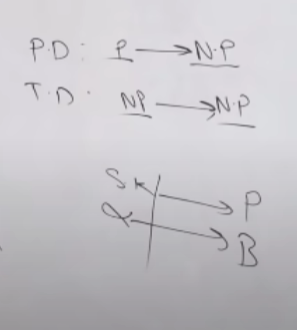 P.D: P → N.P
T.D. NP → N.P
SK → P
α → B